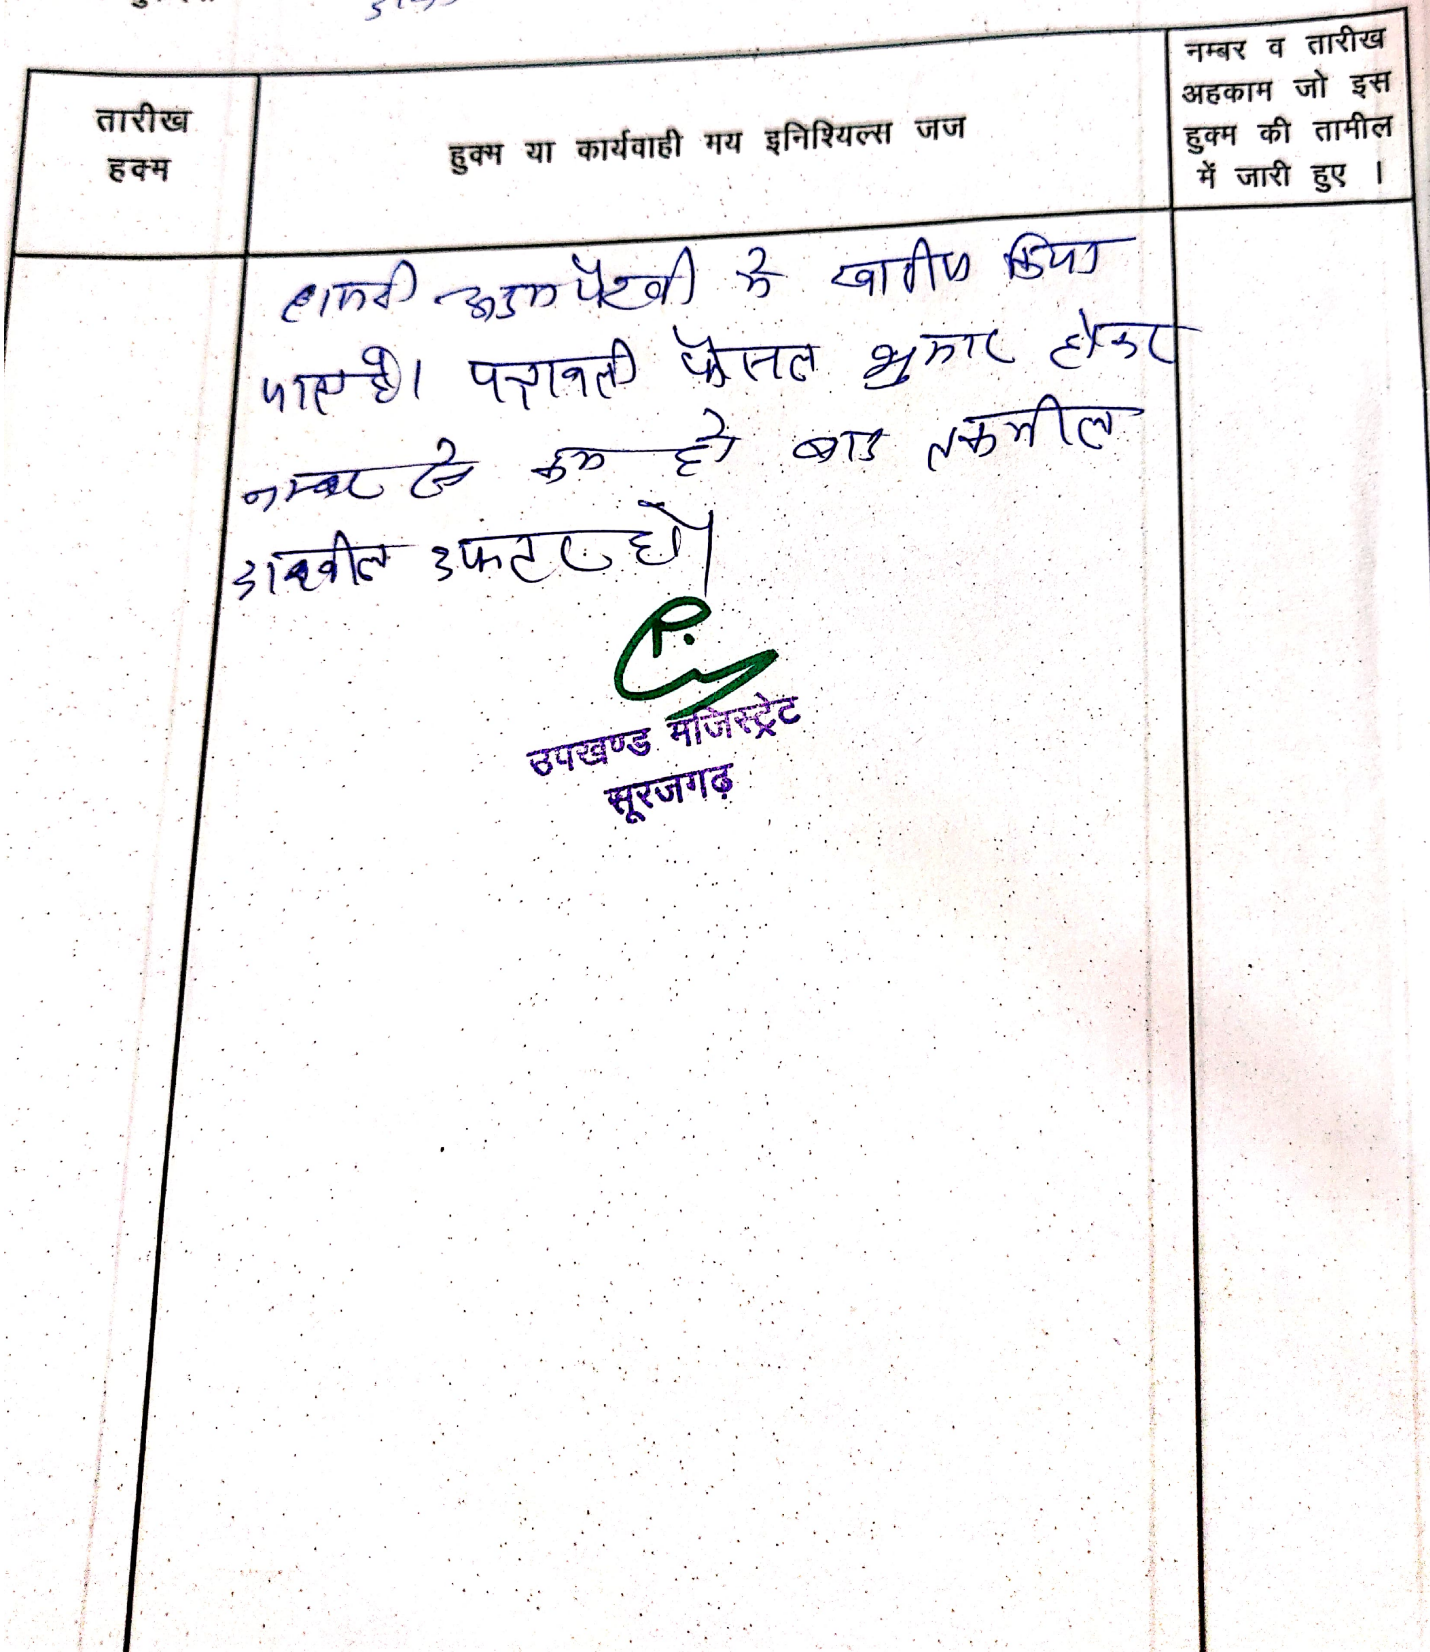 तारीख
हक्म
हुक्म या कार्यवाही मय इनिशियल्स जज
नम्बर व तारीख
अहकाम जो इस
हुक्म की तामील
में जारी हुए ।
अदम पैरवी मे खारीज किया
जाता है। पत्रावली फैसल शुमार होकर
नम्बर से कम हो बाद तकमील
दाखील दफ्टर हो।
उपखण्ड मजिस्ट्रेट
सूरजगढ़